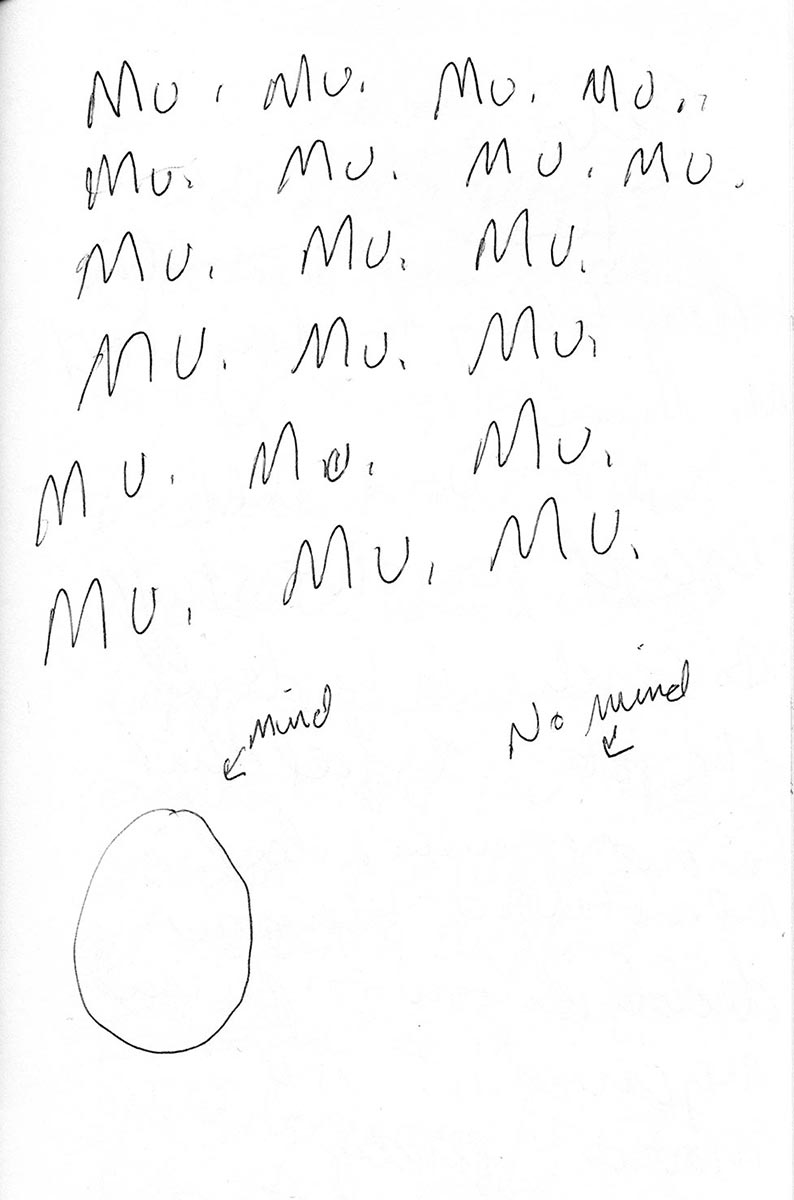 Mu. Mu. Mu. Mu..
Mu. Mu. Mu. Mu.
Mu. Mu. Mu.
Mu. Mu. Mu.
Mu. Mu. Mu.
Mu. Mu. Mu.
Mind No Mind